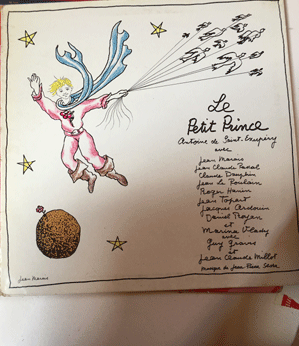 Le
Petit Prince
Antoine de Saint-Exupéry
avec
Jean Marais
Jean Claude Pascal
Claude Dauphin
Jean Le Poulain
Roger Hanin
Jean Topart
Jacques Ardouin
Daniel
et
Marina Vlady
avec
Guy Gravis
et
Jean Claude Millot
musique de Jean Pierre
Jean Marais